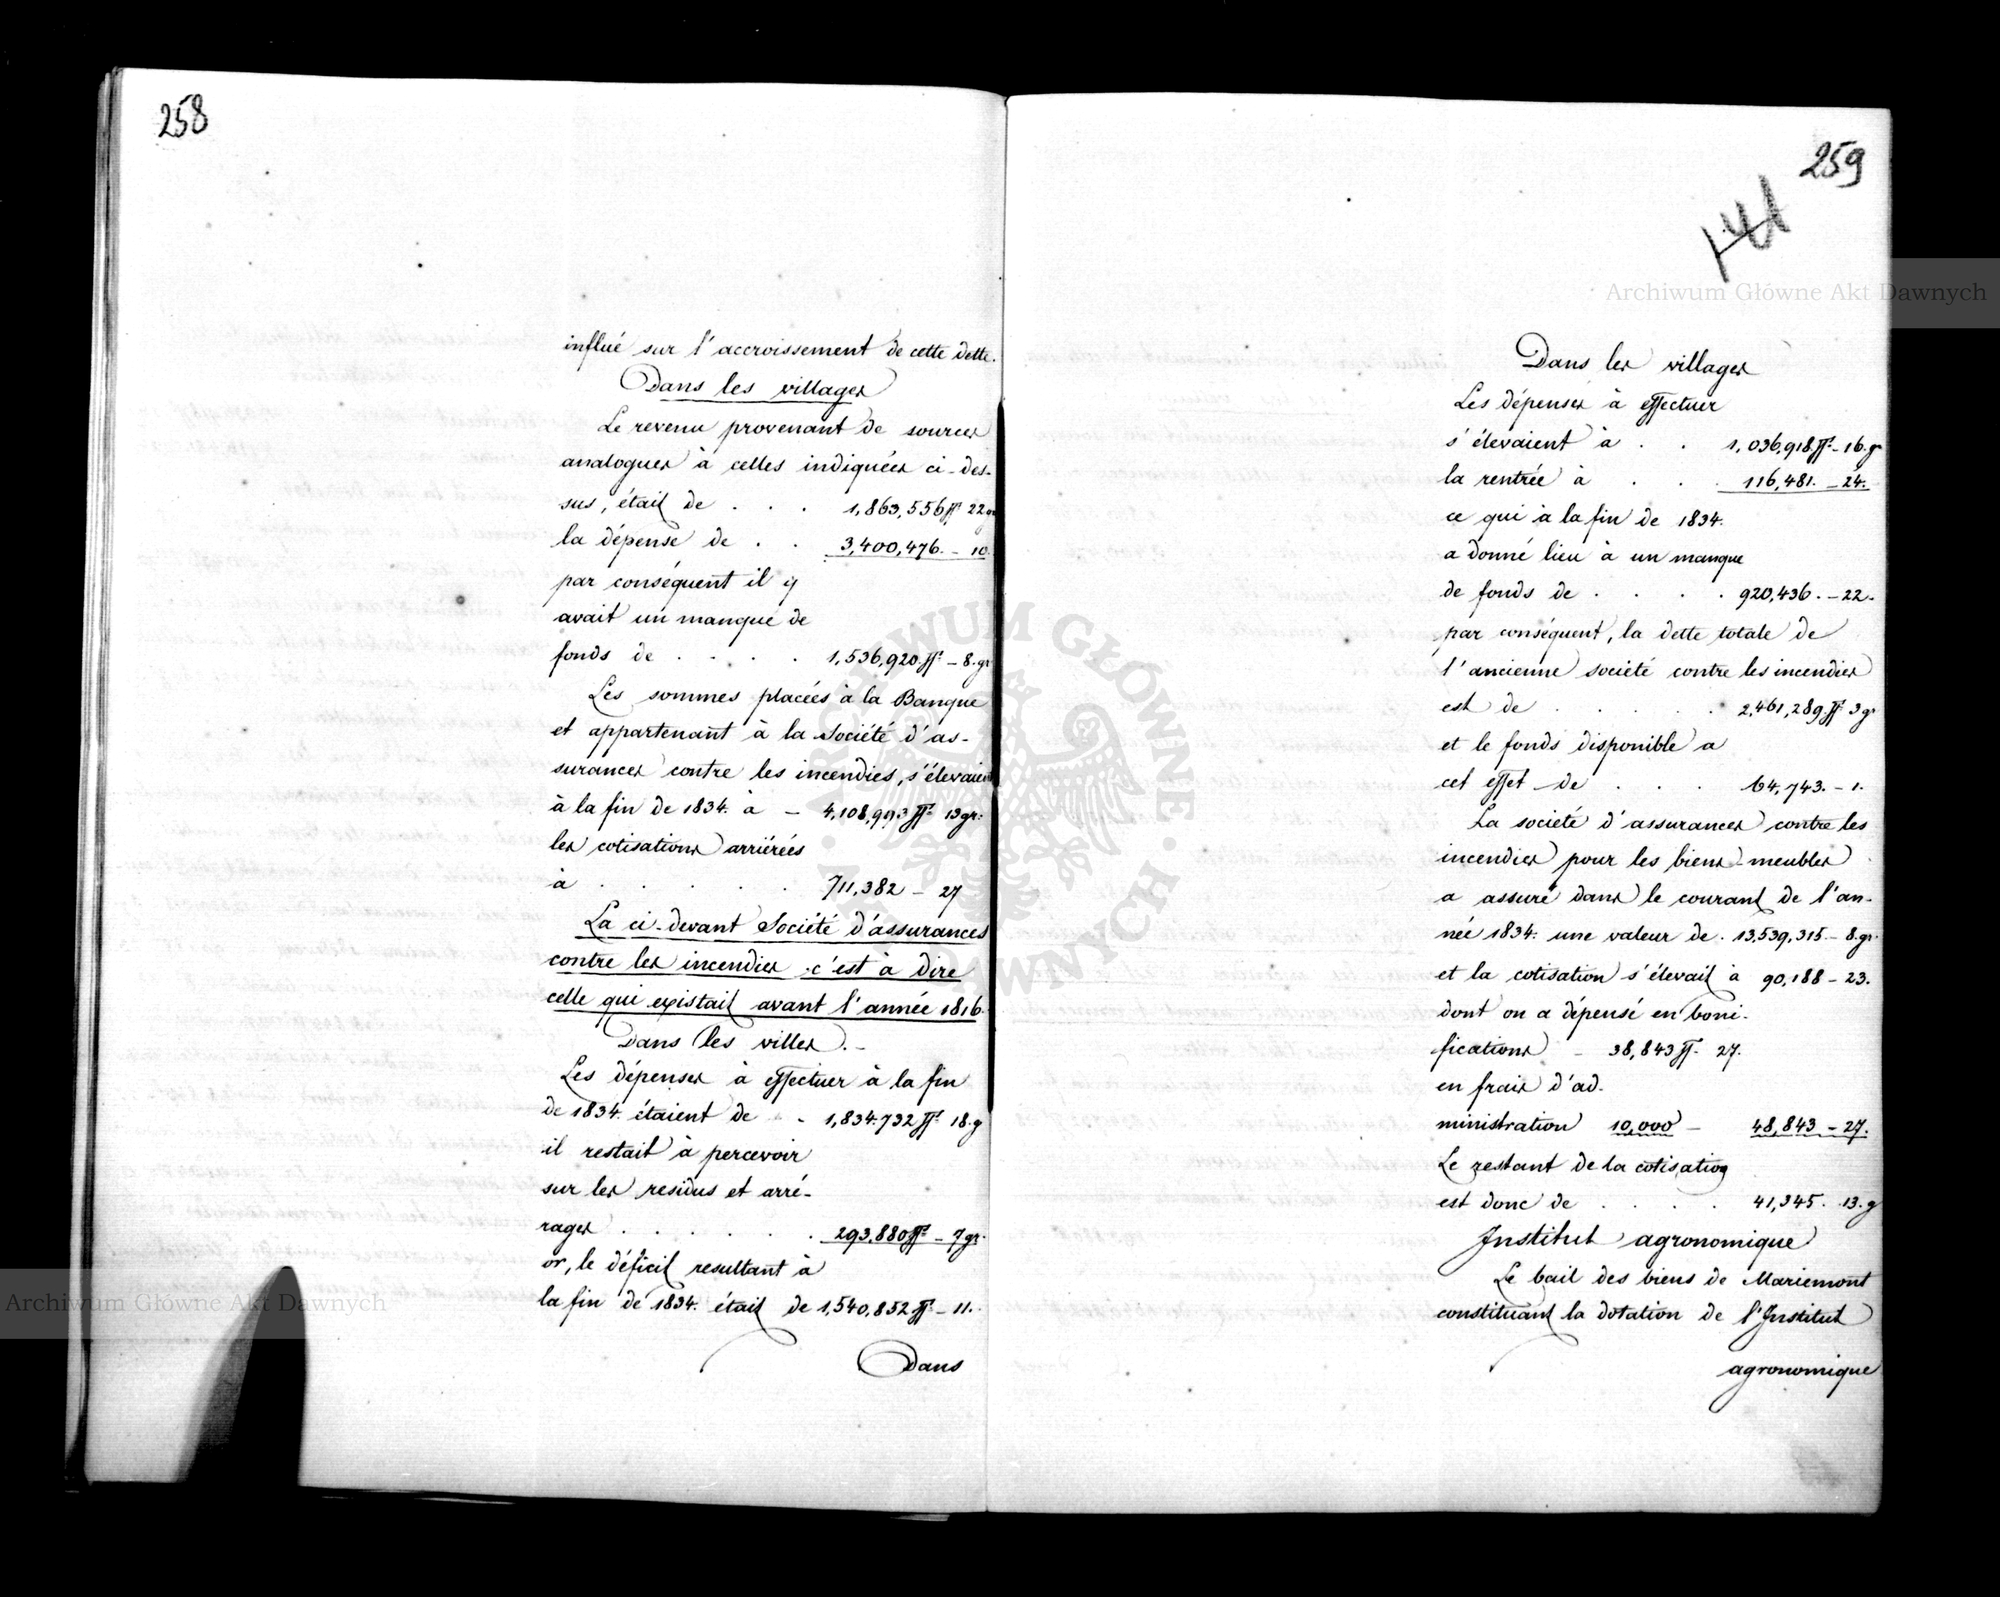 258
influé sur l'accroissement de cette dette.
Dans les villages
Le revenu provenant de sources
analogues à celles indiquées ci-des-
sus, était de . . . 1,863,556 ff 22 gr
la dépense de . . 3,400,476. - 10.
par conséquent il y
avait un manque de
fonds de . . . . 1,536,920 ff. - 8. gr
Les sommes placées à la Banque
et appartenant à la Société d'as-
surances contre les incendies, s'élevaient
à la fin de 1834. à - 4,108,993 ff. 13 gr:
les cotisations arriérées
à . . . . . 711,382 - 27
La ci-devant Société d'assurances
contre les incendies c'est à dire
celle qui existait avant l'année 1816.
Dans les villes. -
Les dépenses à effectuer à la fin
de 1834. étaient de - 1,834.732 ff. 18. g
il restait à percevoir
sur les residus et arré-
rages . . . . . . 293,880 ff. - 7 gr.
or, le déficit resultant à
la fin de 1834. était de 1,540,852 ff. - 11.
Dans
259
141
Dans les villages
Les dépenses à effectuer
s'élevaient à . . 1,036,918 ff. - 16. g
la rentrée à . . . 116,481. - 24.
ce qui à la fin de 1834.
a donné lieu à un manque
de fonds de . . . . 920,436. - 22.
par conséquent, la dette totale de
l'ancienne société contre les incendies
est de . . . . . 2,461,289 ff. 3 gr
et le fonds disponible a
cet effet de . . . 64,743. - 1.
La société d'assurances contre les
incendies pour les biens-meubles
a assuré dans le courant de l'an-
née 1834. une valeur de. 13,539,315. - 8. gr.
et la cotisation s'élevait à 90,188 - 23.
dont on a dépensé en boni-
fications - 38,843 ff. 27.
en frais d'ad-
ministration 10,000 - 48,843 - 27.
Le restant de la cotisation
est donc de . . . . 41,345. 13. g
Institut agronomique
Le bail des biens de Mariemont
constituant la dotation de l'Institut
agronomique
Archiwum Główne Akt Dawnych
Archiwum Główne Akt Dawnych
ARCHIWUM GŁÓWNE AKT DAWNYCH